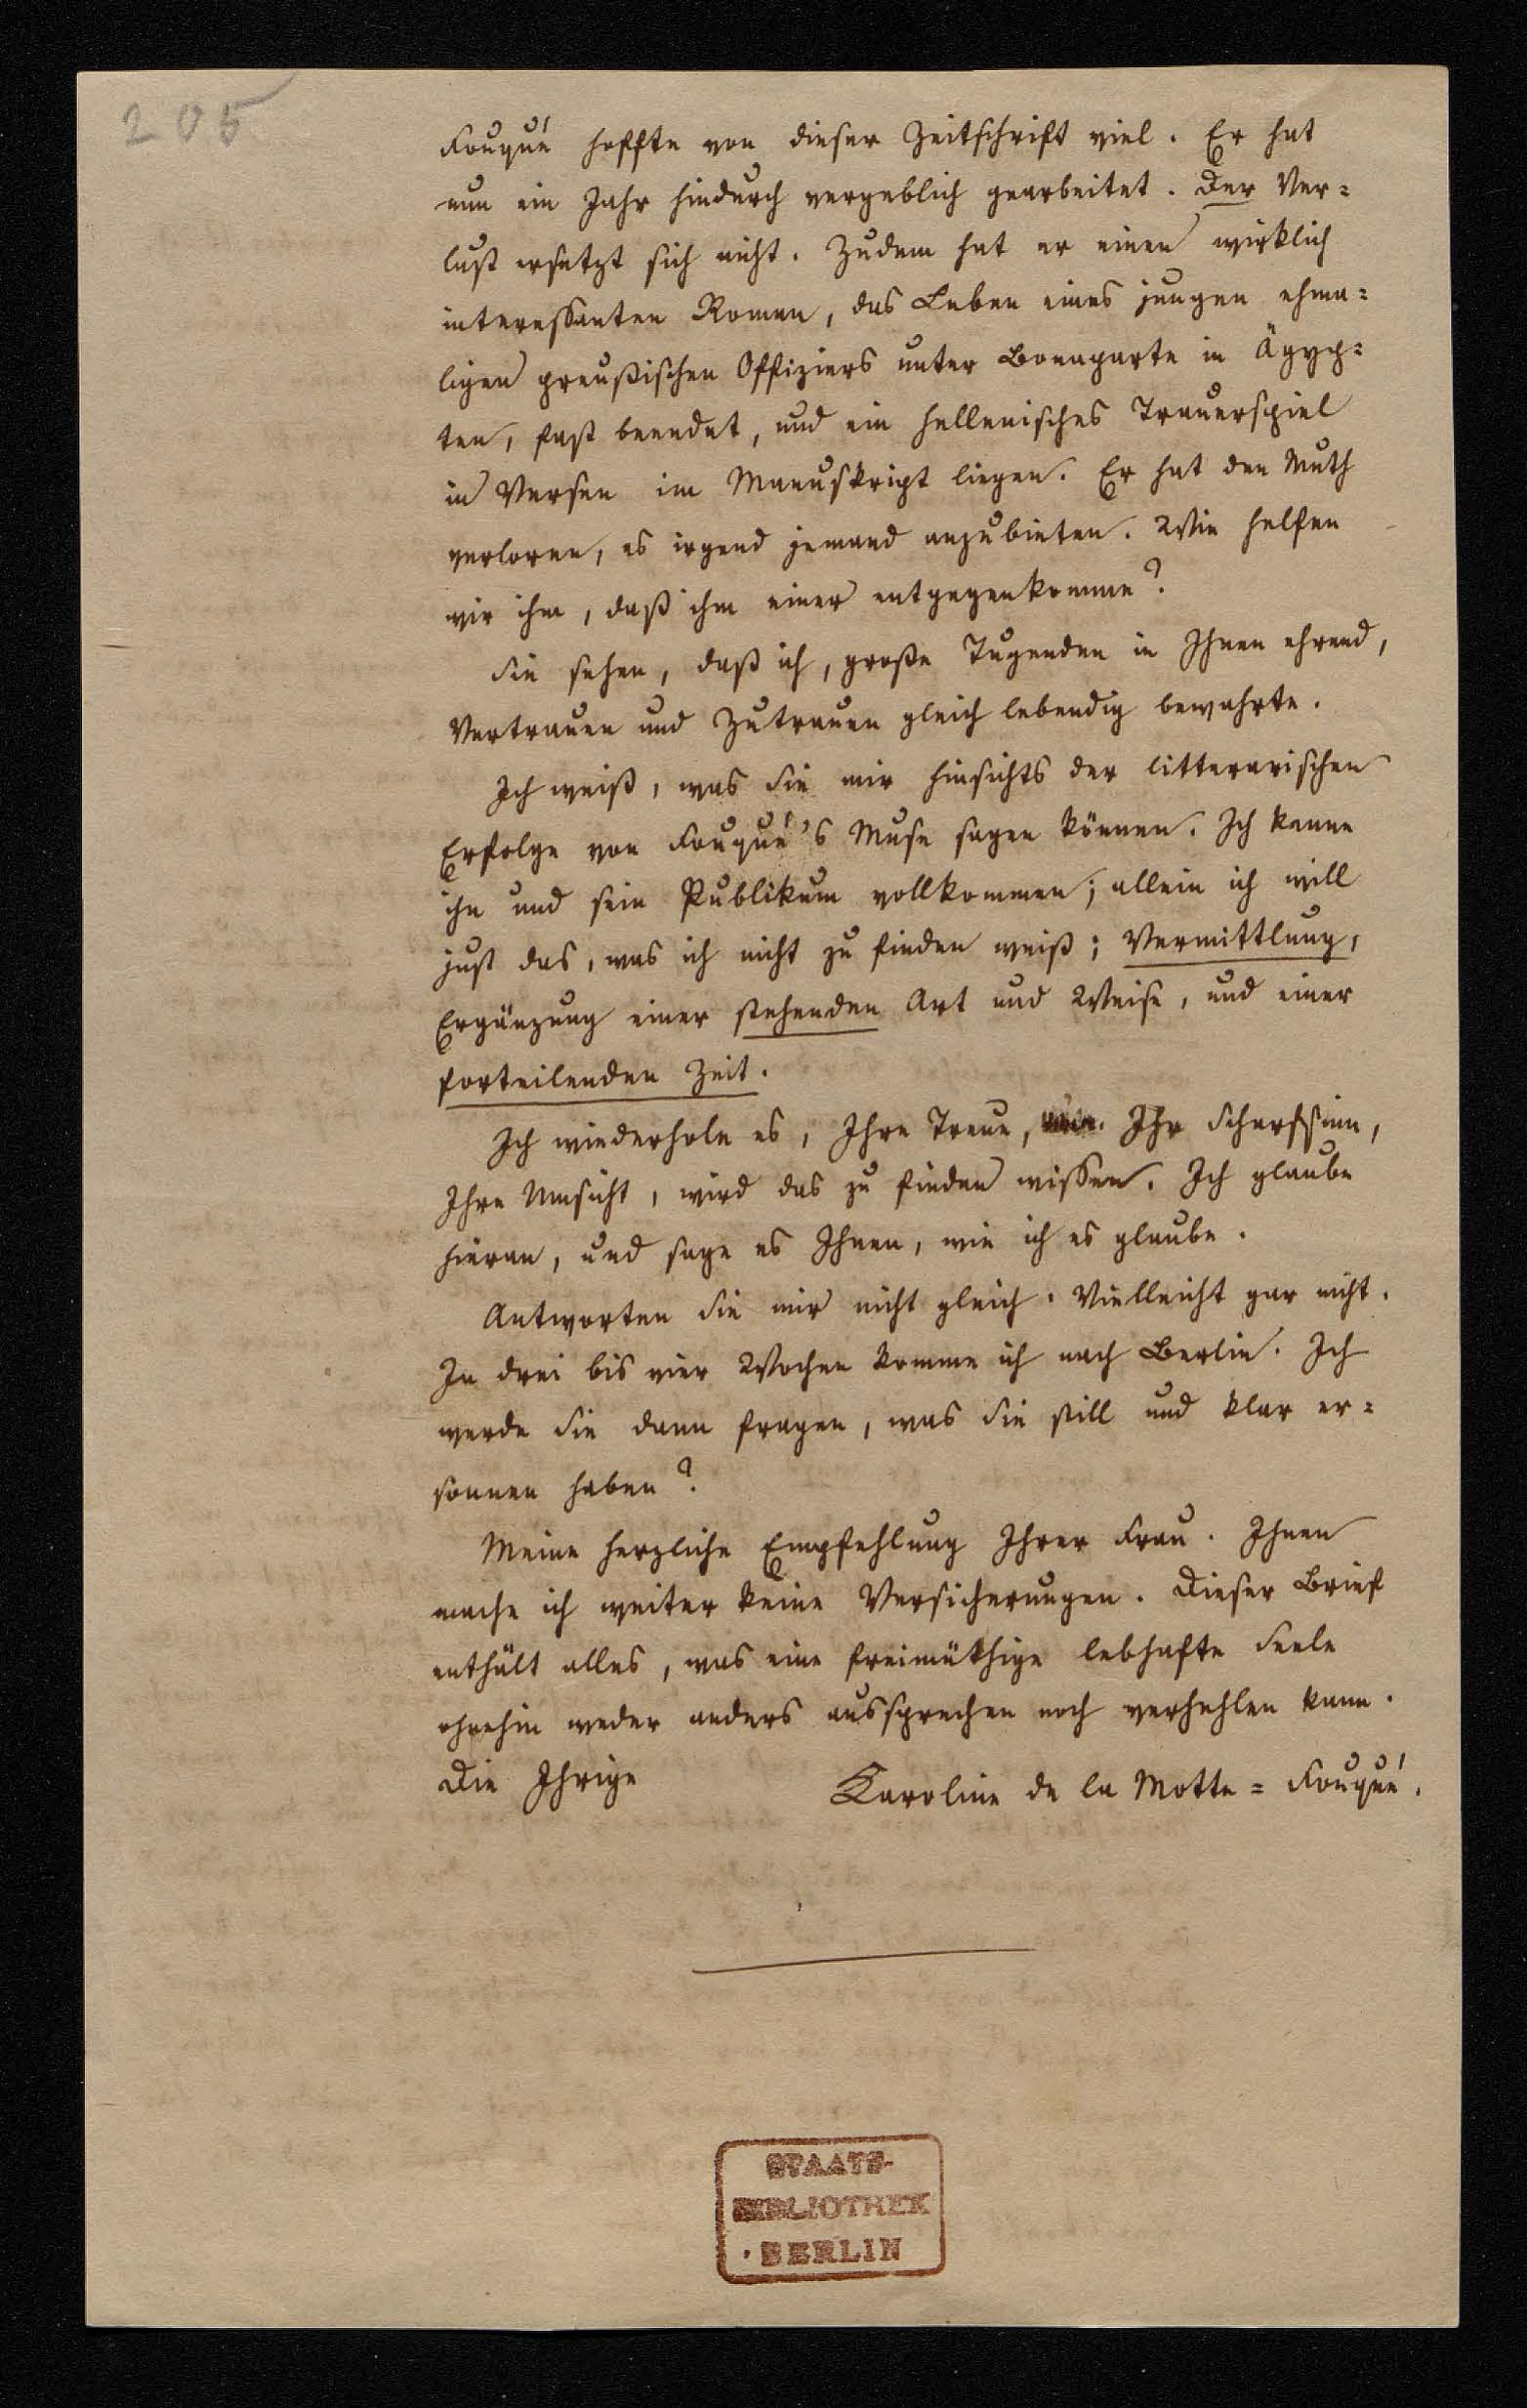 205
Fouqué hoffte von dieser Zeitschrift viel. Er hat
nun ein Jahr hindurch vergeblich gearbeitet. Der Ver=
lust ersetzt sich nicht. Zudem hat er einen wirklich
interessanten Roman, das Leben eines jungen ehma=
ligen preußischen Offiziers unter Bonaparte in Ägyp=
ten, fast beendet, und ein hellenisches Trauerspiel
in Versen im Manuskript liegen. Er hat den Muth
verloren, es irgend jemand anzubieten. Wie helfen
wir ihm, daß ihm einer entgegenkomme?
Sie sehen, daß ich, große Tugenden in Ihnen ehrend,
Vertrauen und Zutrauen gleich lebendig bewahrte.
Ich weiß, was Sie mir hinsichts der litterarischen
Erfolge von Fouqué's Muse sagen können. Ich kenne
ihn und sein Publikum vollkommen; allein ich will
just das, was ich nicht zu finden weiß; Vermittlung,
Ergänzung einer stehenden Art und Weise, und einer
forteilenden Zeit.
Ich wiederhole es, Ihre Treue, Ihr Scharfsinn,
Ihre Umsicht, wird das zu finden wissen. Ich glaube
hieran, und sage es Ihnen, wie ich es glaube.
Antworten Sie mir nicht gleich. Vielleicht gar nicht.
In drei bis vier Wochen komme ich nach Berlin. Ich
werde Sie dann fragen, was Sie still und klar er=
sonnen haben?
Meine herzliche Empfehlung Ihrer Frau. Ihnen
mache ich weiter keine Versicherungen. Dieser Brief
enthält alles, was eine freimüthige lebhafte Seele
ohnehin weder anders aussprechen noch verhehlen kann.
Die Ihrige Karoline de la Motte=Fouqué.
STAATS-
BIBLIOTHEK
BERLIN